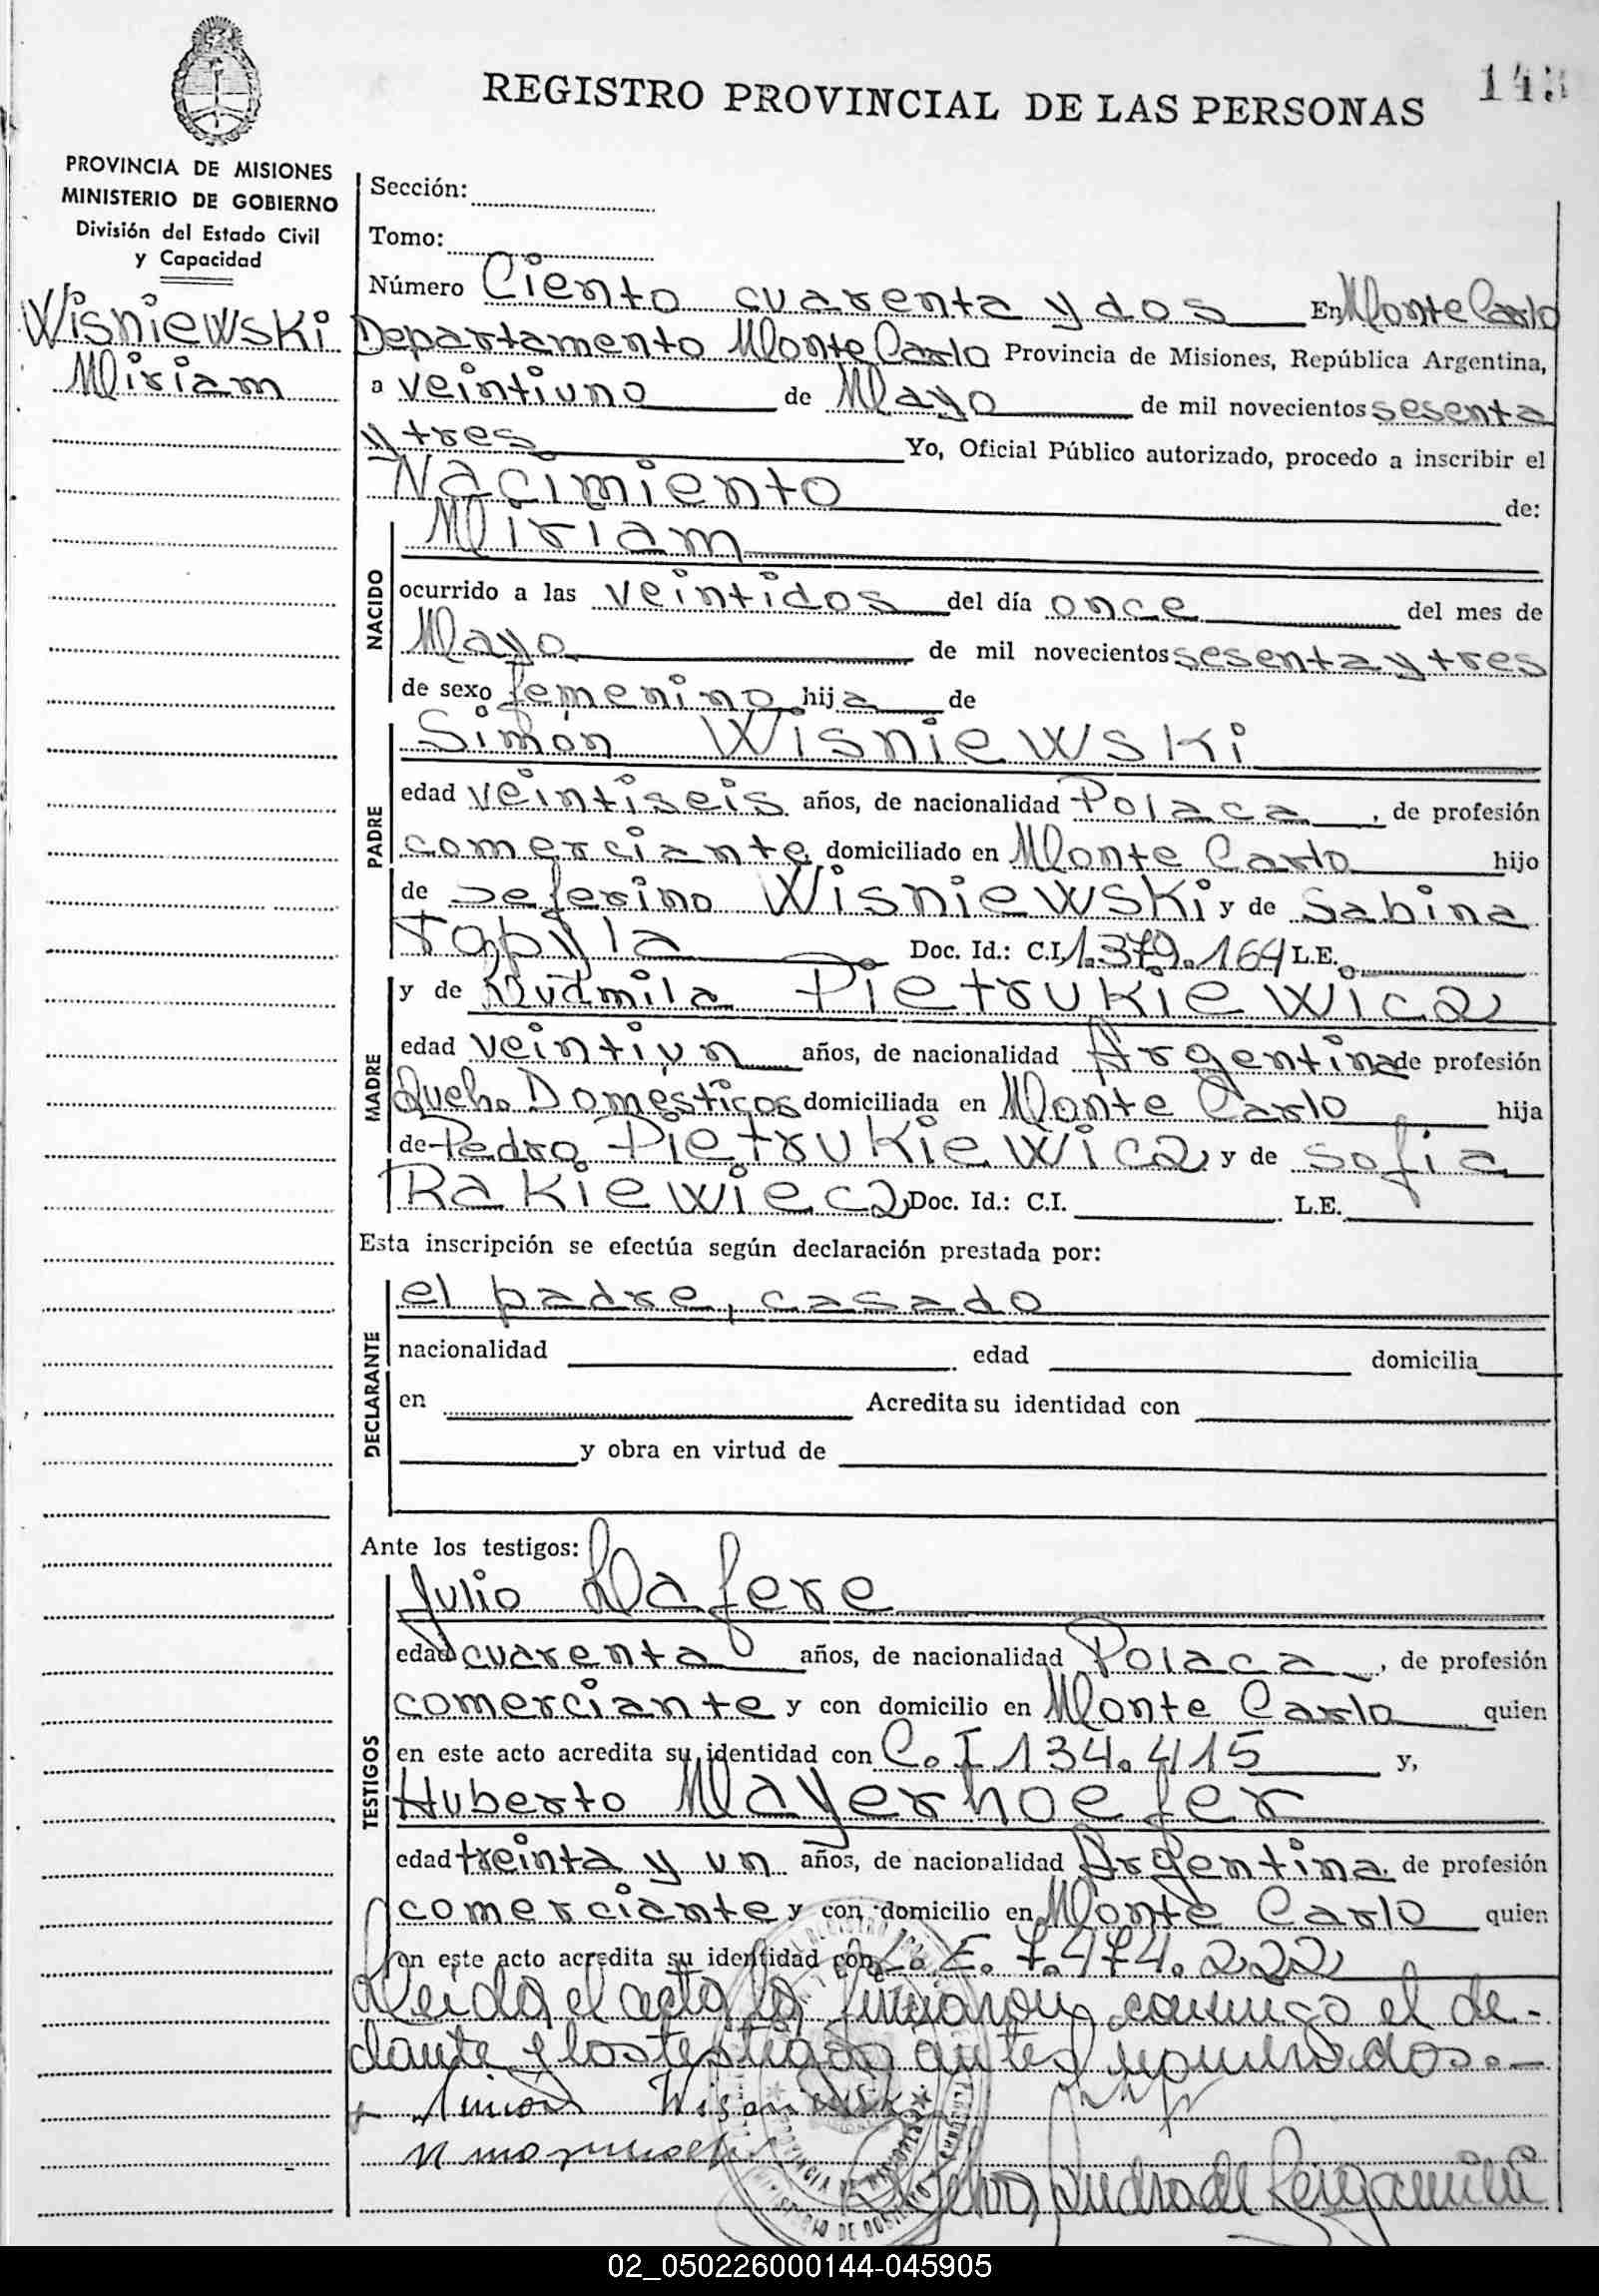 REGISTRO PROVINCIAL DE LAS PERSONAS
PROVINCIA DE MISIONES
MINISTERIO DE GOBIERNO
División del Estado Civil
y Capacidad
Wisniewski
Miriam
Sección:
Tomo:
Número Ciento cuarenta y dos En Monte Carlo
Departamento Monte Carlo Provincia de Misiones, República Argentina,
a veintiuno de Mayo de mil novecientos sesenta
y tres Yo, Oficial Público autorizado, procedo a inscribir el
Nacimiento de:
NACIDO
Miriam
ocurrido a las veintidos del día once del mes de
Mayo de mil novecientos sesenta y tres
de sexo femenino hija de
PADRE
Simón Wisniewski
edad veintiseis años, de nacionalidad Polaca, de profesión
comerciante domiciliado en Monte Carlo hijo
de Seferino Wisniewski y de Sabina
Topyla Doc. Id.: C.I. 1.379.164 L.E.
MADRE
y de Ludmila Pietrukiewicz
edad veintiun años, de nacionalidad Argentina de profesión
Queh. Domésticos domiciliada en Monte Carlo hija
de Pedro Pietrukiewicz y de Sofia
Rakiewiecz Doc. Id.: C.I. L.E.
Esta inscripción se efectúa según declaración prestada por:
DECLARANTE
el padre, casado
nacionalidad edad domicilia
en Acredita su identidad con
y obra en virtud de
Ante los testigos:
TESTIGOS
Julio Dafere
edad cuarenta años, de nacionalidad Polaca, de profesión
comerciante y con domicilio en Monte Carlo quien
en este acto acredita su identidad con C. I 134.415 y,
Huberto Mayerhoefer
edad treinta y un años, de nacionalidad Argentina de profesión
comerciante y con domicilio en Monte Carlo quien
en este acto acredita su identidad con L. E. 7.474.222
Leida el acta la firmaron conmigo el de-
clante y los testigos antes nombrados.—
Simon Wisniewski
PROVINCIA DE MISIONES
MINISTERIO DE GOBIERNO
02_050226000144-045905